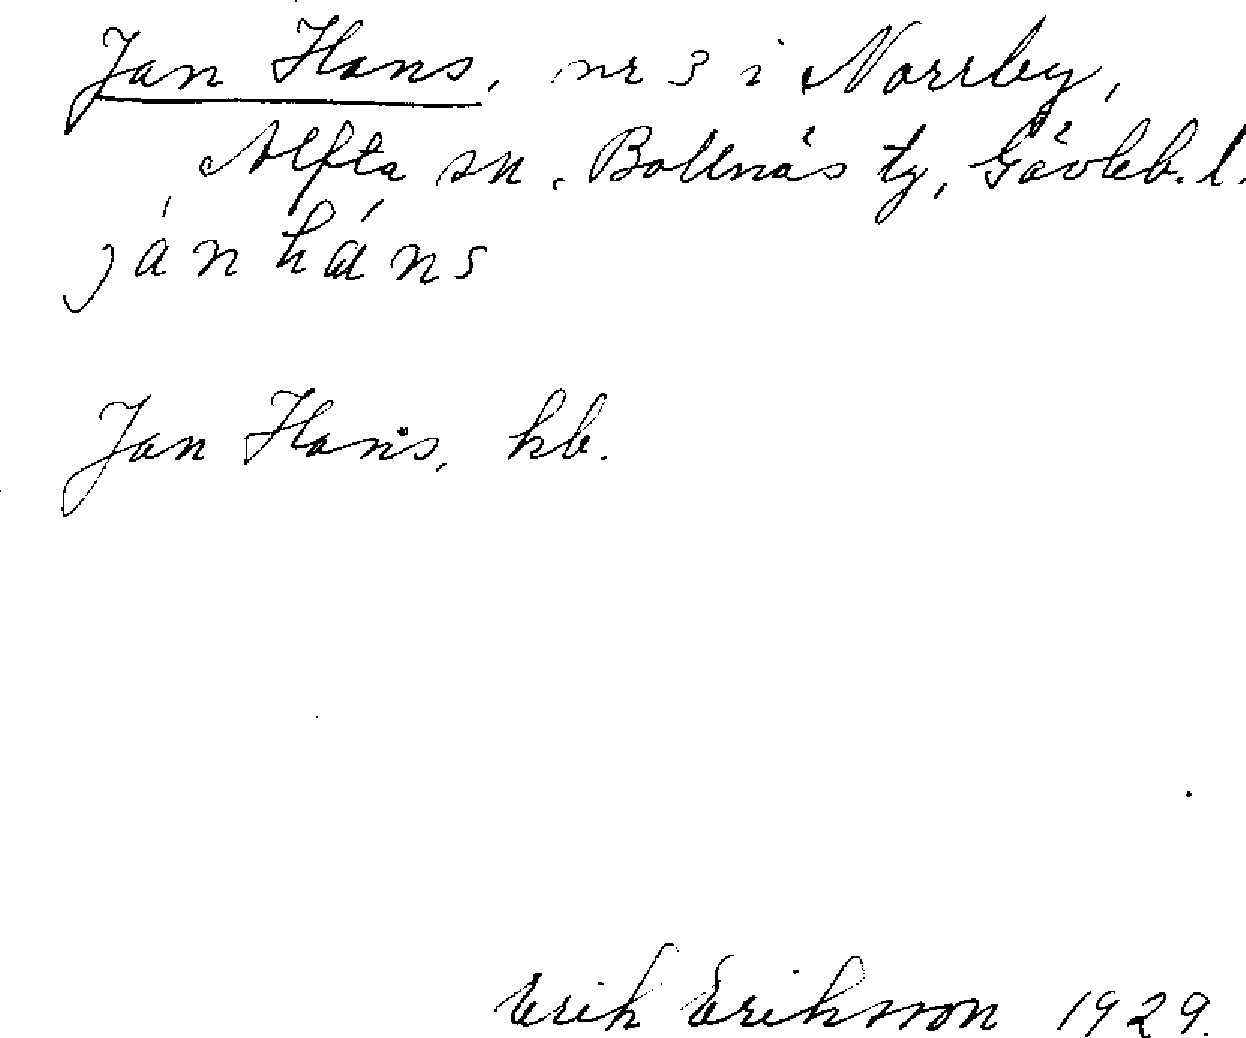 Jan Hans, nr 3 i Norrby,
Alfta sn. Bollnäs tg, Gävleb. l.
ján háns
Jan Hans, kb.
Erik Eriksson 1929.